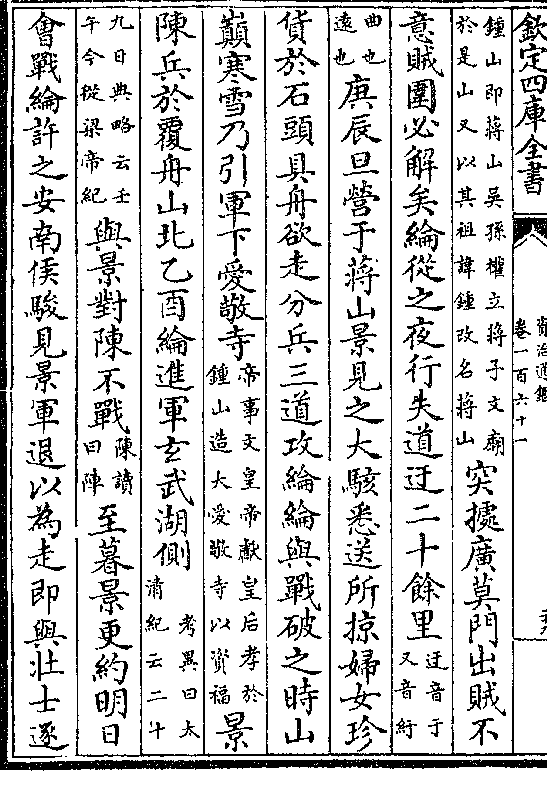 欽定四庫全書
資治通鑑
卷一百六十一
鍾山即蔣山吳孫權立蔣子文廟
於是山又以其祖諱鍾改名蔣山
突據廣莫門出賊不
意賊圍必解矣綸從之夜行失道迂二十餘里
迂音于
又音紆
曲也
遠也
庚辰旦營于蔣山景見之大駭悉送所掠婦女珍
貨於石頭具舟欲走分兵三道攻綸綸與戰破之時山
巔寒雪乃引軍下愛敬寺
帝事文皇帝獻皇后孝於
鍾山造大愛敬寺以資福
景
陳兵於覆舟山北乙酉綸進軍玄武湖側
考異曰太
清紀云二十
九日典略云壬
午今從梁帝紀
與景對陳不戰
陳讀
曰陣
至暮景更約明日
會戰綸許之安南侯駿見景軍退以為走即與壯士逐